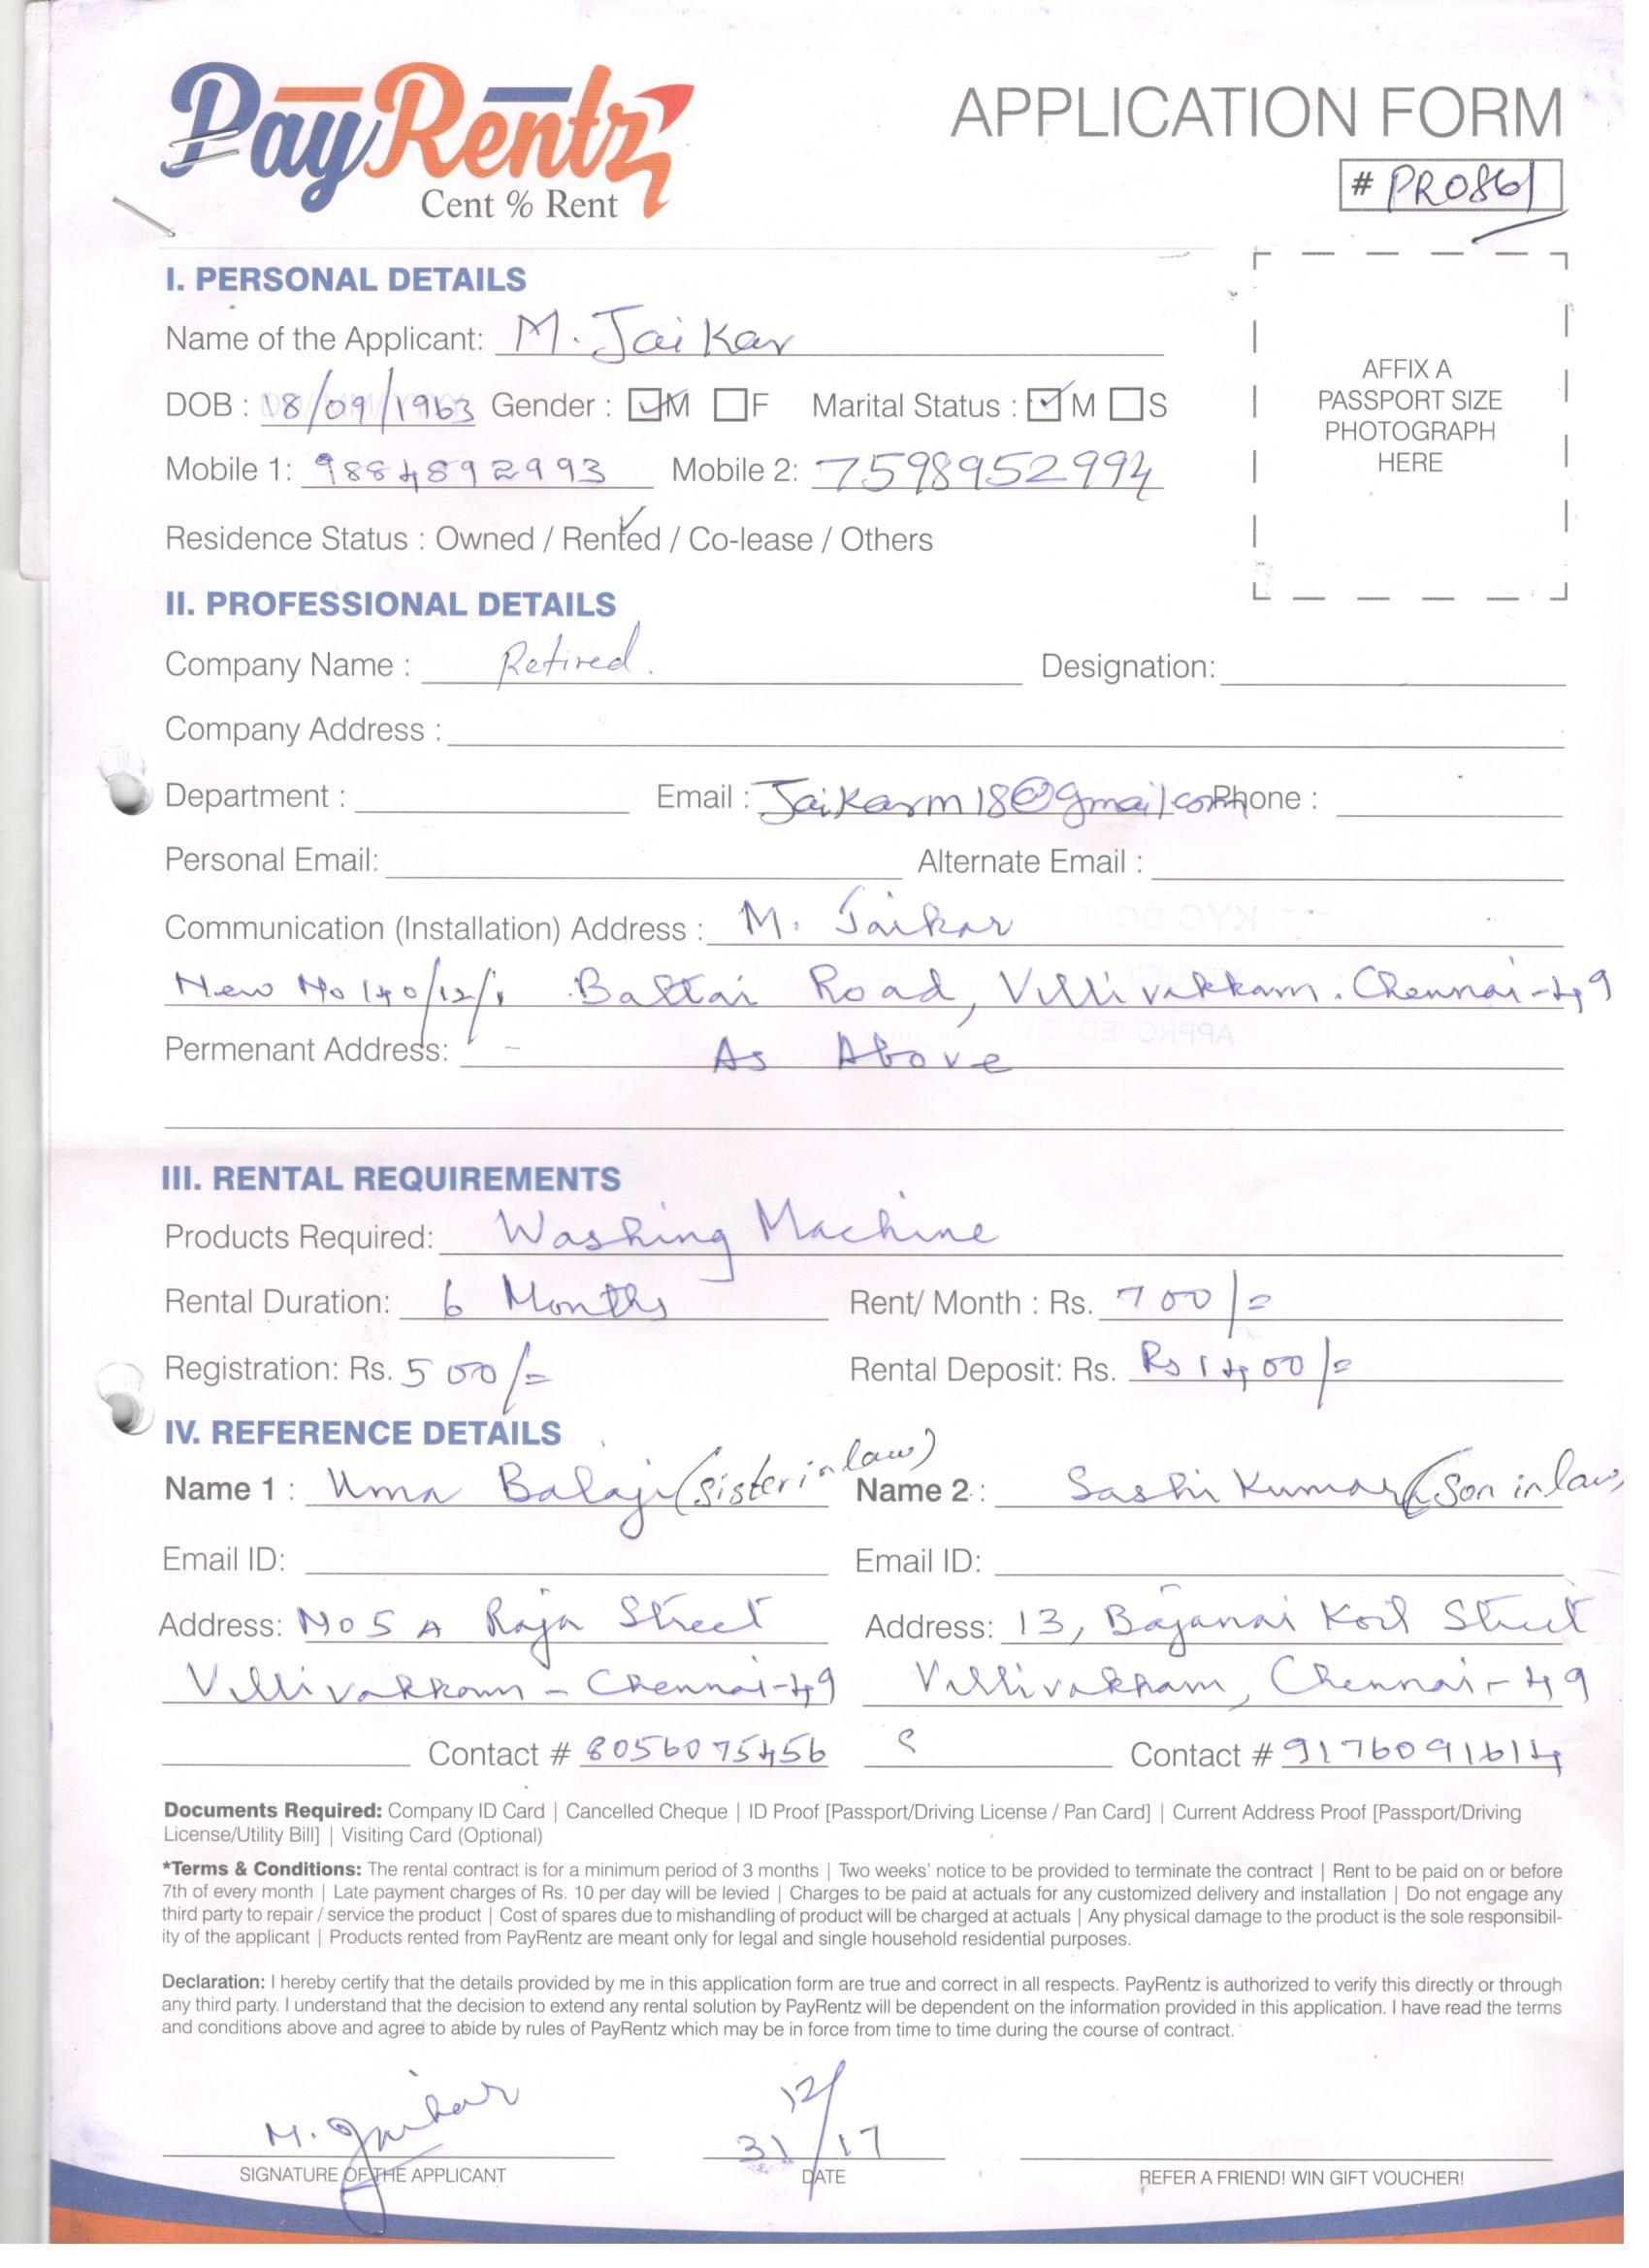 PayRentz
Cent % Rent
APPLICATION FORM
# PR0861
I. PERSONAL DETAILS
Name of the Applicant: M. Jaikar
DOB : 18/09/1963 Gender : M F Marital Status : M S
Mobile 1: 9884892993 Mobile 2: 7598952994
Residence Status : Owned / Rented / Co-lease / Others
AFFIX A
PASSPORT SIZE
PHOTOGRAPH
HERE
II. PROFESSIONAL DETAILS
Company Name : Retired. Designation:
Company Address :
Department : Email : Jaikarm18@gmail.com Phone :
Personal Email: Alternate Email :
Communication (Installation) Address : M. Jaikar
New No 140/12/1 Baltai Road, Villivakkam. Chennai-49
Permenant Address: - As Above
III. RENTAL REQUIREMENTS
Products Required: Washing Machine
Rental Duration: 6 Months Rent/ Month : Rs. 700/=
Registration: Rs. 500/= Rental Deposit: Rs. Rs 1400/=
IV. REFERENCE DETAILS
Name 1 : Uma Balaji (sister in law) Name 2 : Sashi Kumar (Son in law)
Email ID: Email ID:
Address: No 5 A Raja Street Address: 13, Bajanai Koil Street
Villivakkam - Chennai-49 Villivakkam, Chennai-49
Contact # 8056075456 Contact # 9176091614
Documents Required: Company ID Card | Cancelled Cheque | ID Proof [Passport/Driving License / Pan Card] | Current Address Proof [Passport/Driving
License/Utility Bill] | Visiting Card (Optional)
*Terms & Conditions: The rental contract is for a minimum period of 3 months | Two weeks' notice to be provided to terminate the contract | Rent to be paid on or before
7th of every month | Late payment charges of Rs. 10 per day will be levied | Charges to be paid at actuals for any customized delivery and installation | Do not engage any
third party to repair / service the product | Cost of spares due to mishandling of product will be charged at actuals | Any physical damage to the product is the sole responsibil-
ity of the applicant | Products rented from PayRentz are meant only for legal and single household residential purposes.
Declaration: I hereby certify that the details provided by me in this application form are true and correct in all respects. PayRentz is authorized to verify this directly or through
any third party. I understand that the decision to extend any rental solution by PayRentz will be dependent on the information provided in this application. I have read the terms
and conditions above and agree to abide by rules of PayRentz which may be in force from time to time during the course of contract.
M. Jaikar 31/12/17
SIGNATURE OF THE APPLICANT DATE REFER A FRIEND! WIN GIFT VOUCHER!